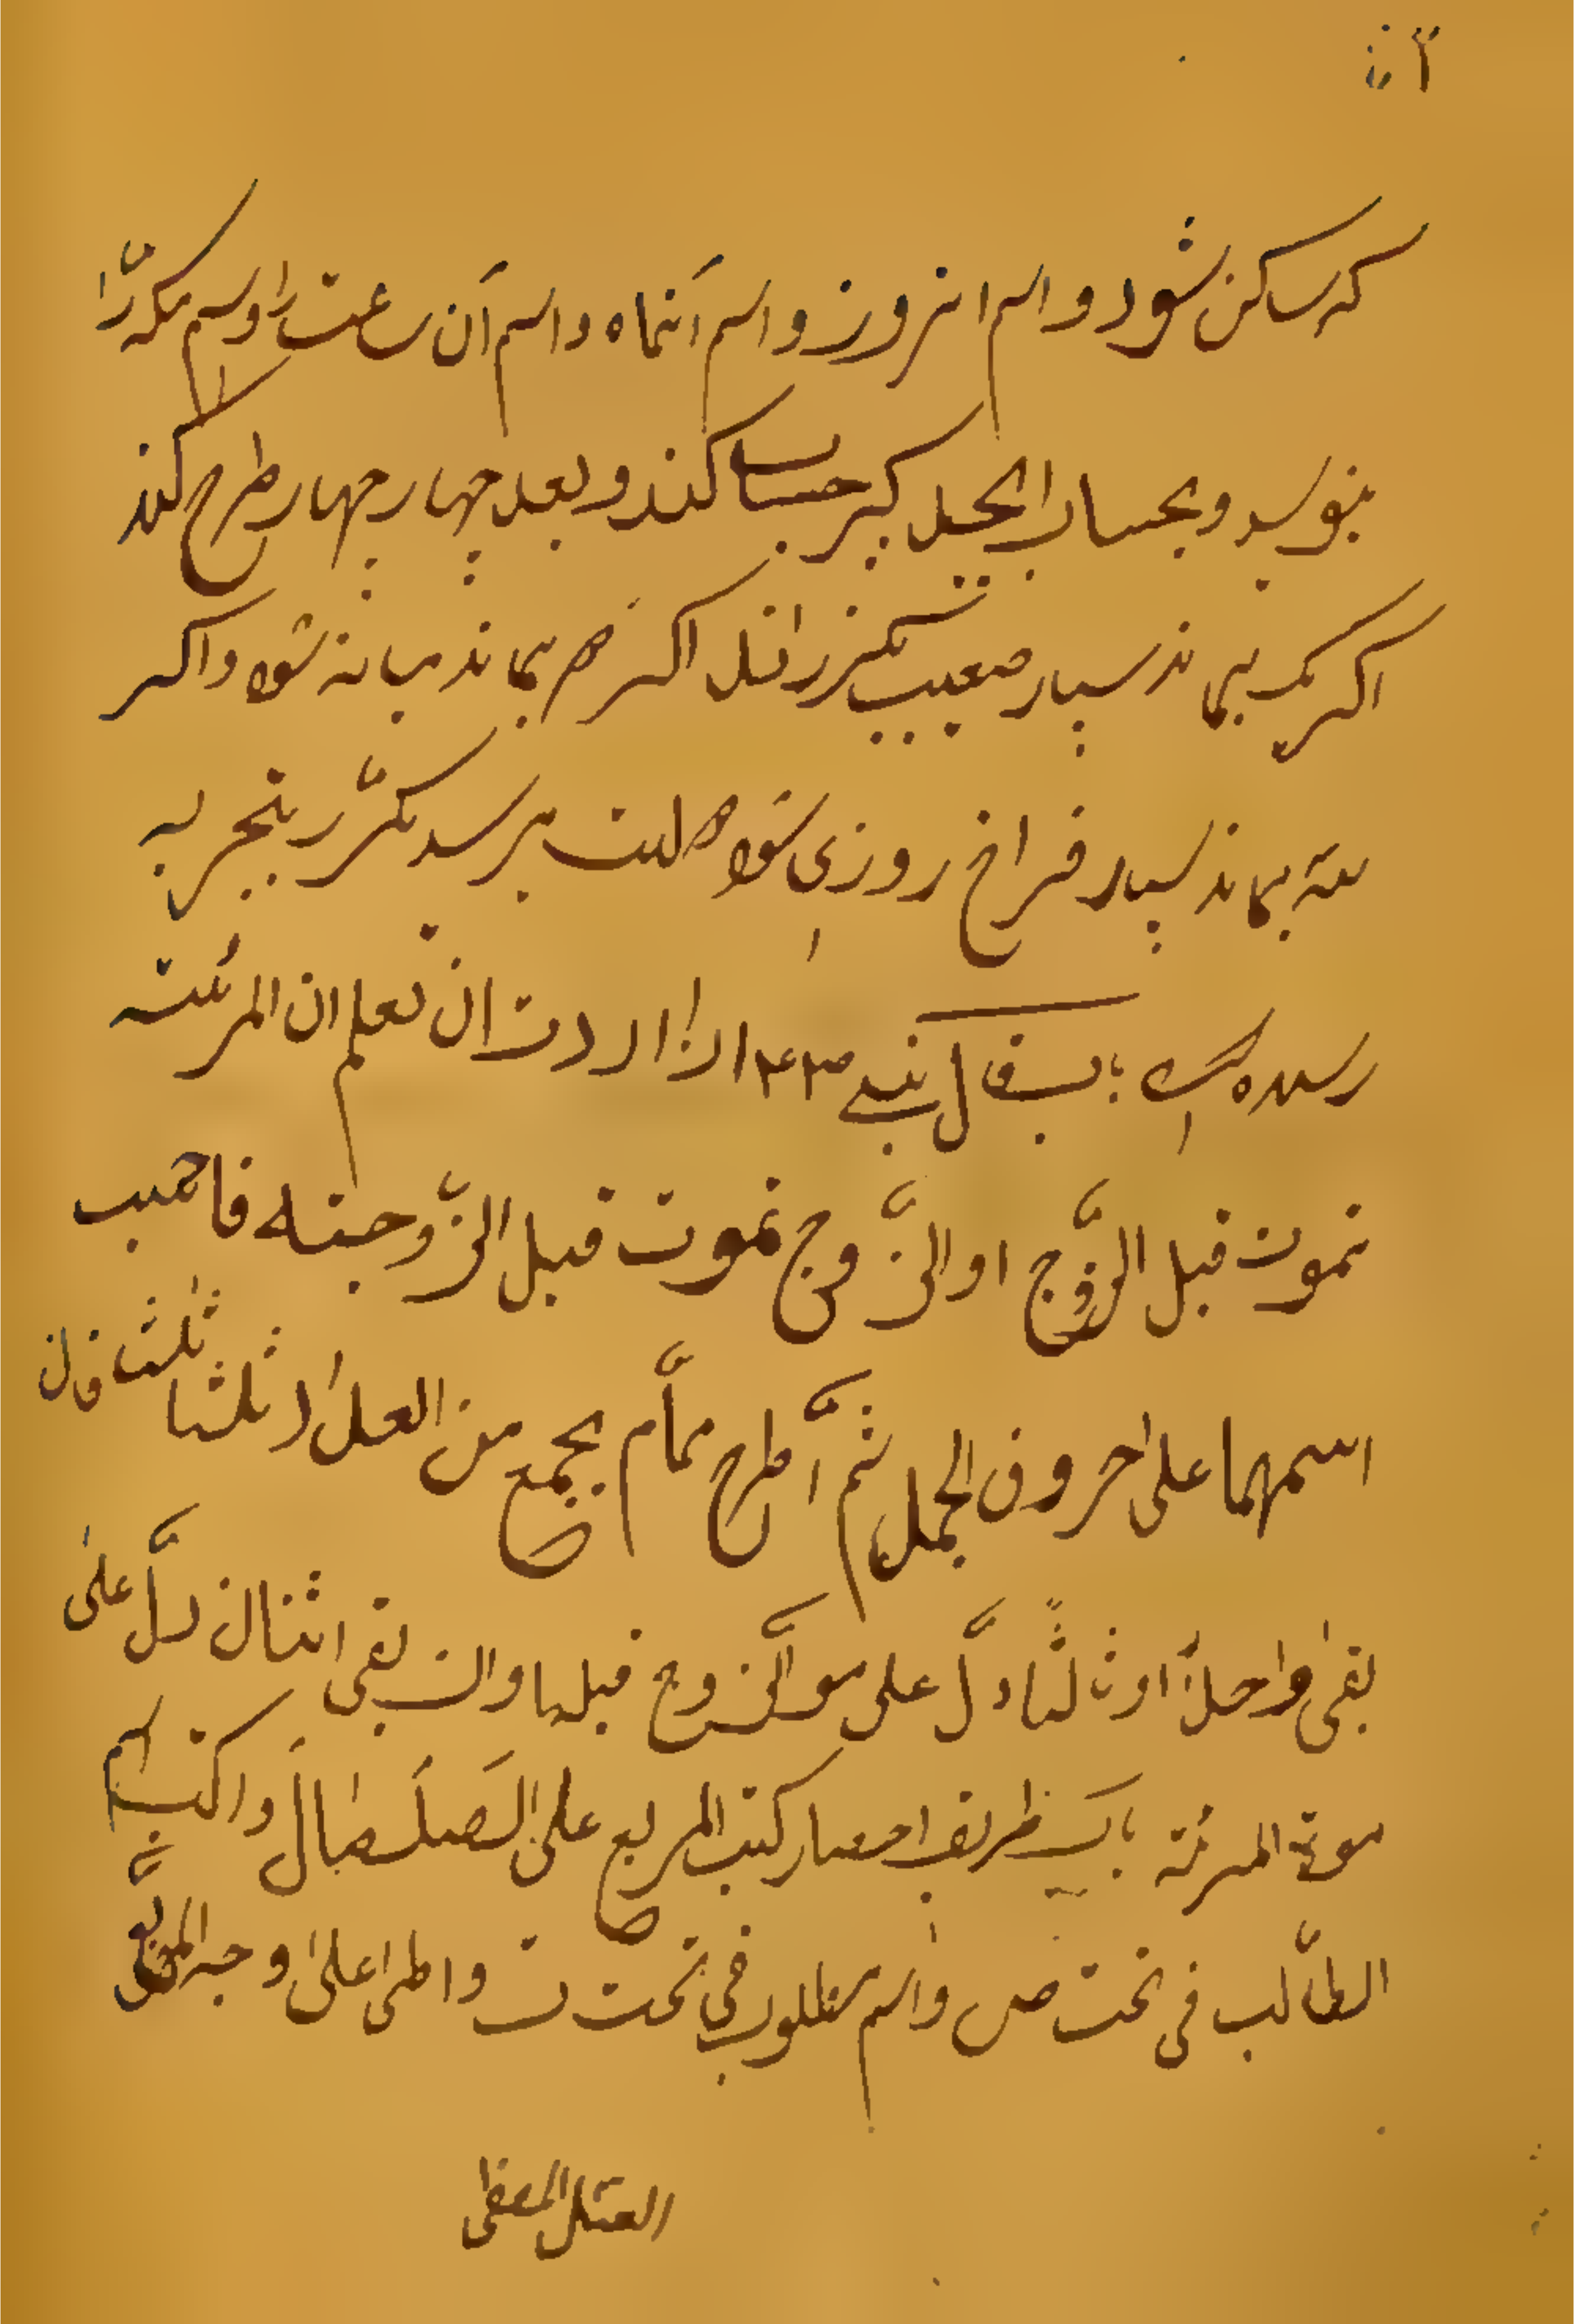 که ساکن شود و اسم انروز و اسم آنماه و اسم آن ساعت را و اسم مکه را
بنویسد و بحساب الجمل کبیر حساب کند و بعد چهار چهار طرح کند
اکر یک بماند بسیار صعیب بکزراند اکر هم بماند میانه شود و اکر
سه بماند بسیار فراخ روزی شود دولت برسد مکرّر بتجربه
رسیده است باب فال بنی ۱۲۴۳ اذا اردت ان تعلم ان المرئته
تموت قبل الزّوج او الزّوج تموت قبل الزّوجته فاحسب
اسمهما على حروف الجمل ثمّ اطرح تمام یجمع من العدد ثلثا ثلثا فان
بقى واحداً او ثالثاً دلّ على موت الزّوج قبلها وان بقى اثنان دلّ على
موت المرئة باب طریق احصار کتب المربع على الصلصال واکتب اسم
الطّالب فی تحت ص واسم مطلوب فی تحت ت واطلى على وجه المربّع
العسل المصفى